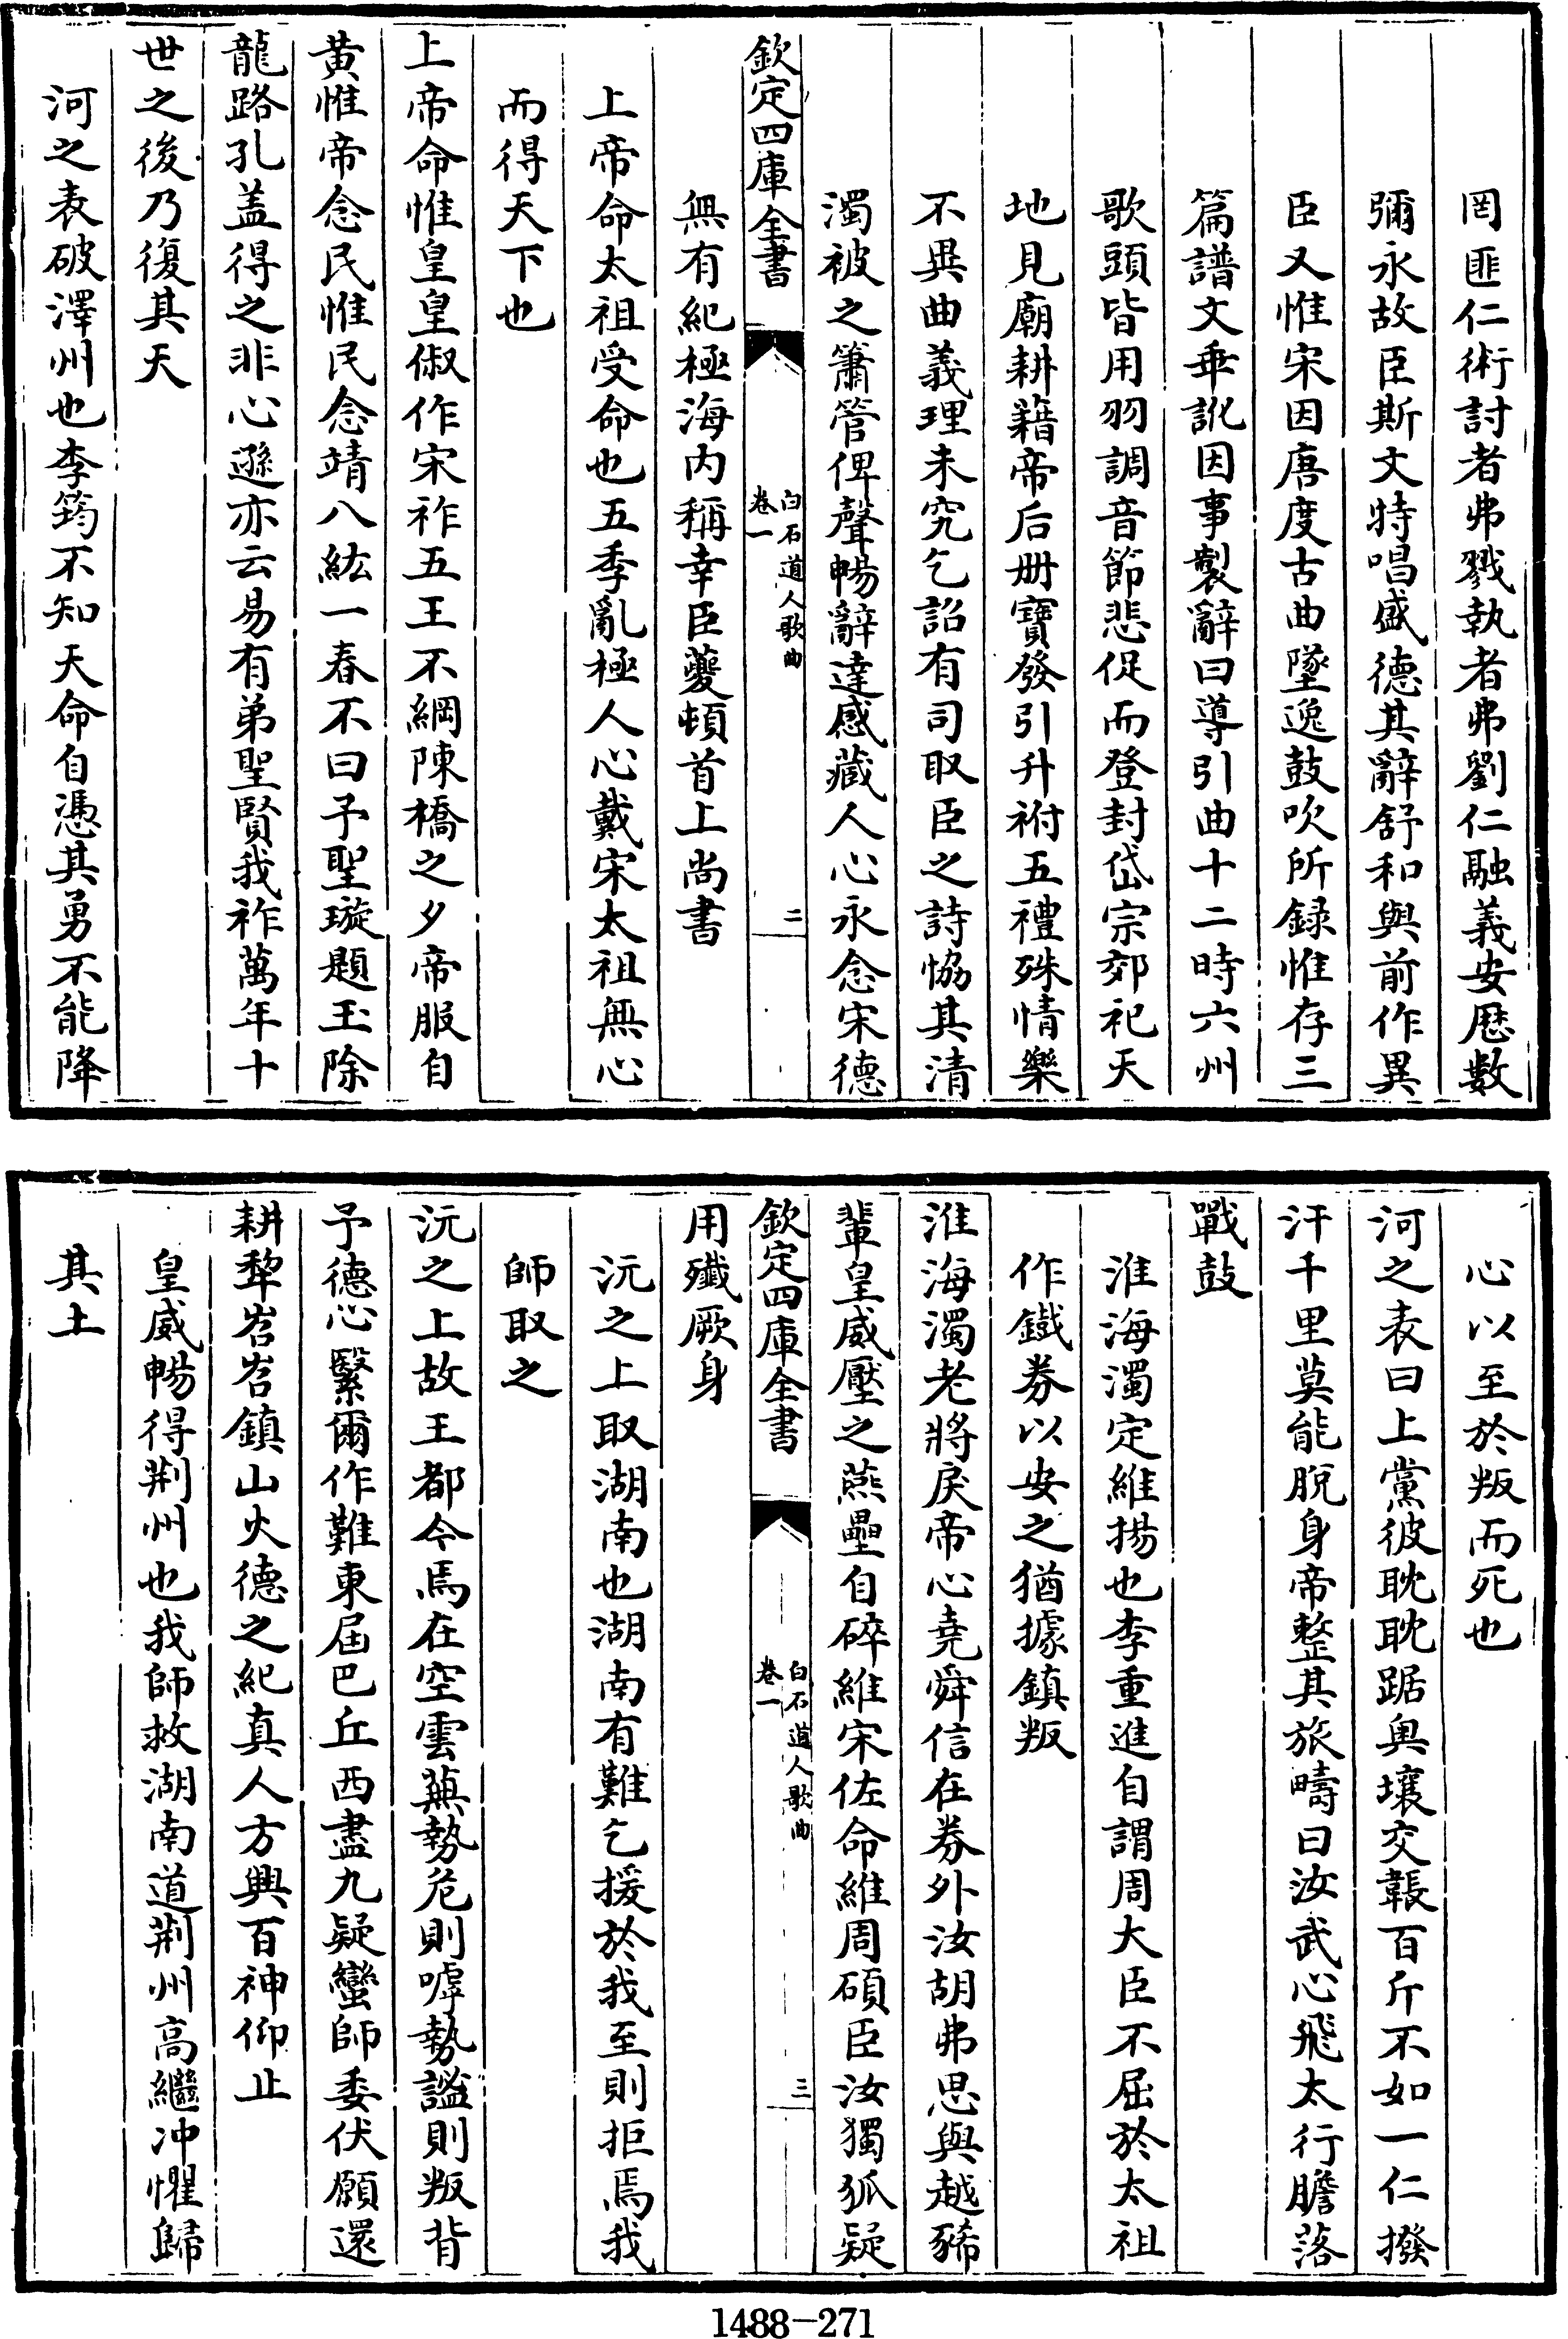 罔匪仁術討者弗戮執者弗劉仁融義安厯數
彌永故臣斯文特唱盛德其辭舒和與前作異
臣又惟宋因唐度古曲墜逸鼓吹所録惟存三
篇譜文乖訛因事製辭曰導引曲十二時六州
歌頭皆用羽調音節悲促而登封岱宗郊祀天
地見廟耕籍帝后册寶發引升祔五禮殊情樂
不異曲義理未究乞詔有司取臣之詩協其清
濁被之簫管俾聲暢辭達感藏人心永念宋德
欽定四庫全書
白石道人歌曲
卷一
二
無有紀極海内稱幸臣夔頓首上尚書
上帝命太祖受命也五季亂極人心戴宋太祖無心
而得天下也
上帝命惟皇皇俶作宋祚五王不綱陳橋之夕帝服自
黄惟帝念民惟民念靖八紘一春不曰予聖璇題玉除
龍路孔盖得之非心遜亦云易有弟聖賢我祚萬年十
世之後乃復其天
河之表破澤州也李筠不知天命自憑其勇不能降
心以至於叛而死也
河之表曰上黨彼耽耽踞奥壤交韔百斤不如一仁撥
汗千里莫能脱身帝整其旅疇曰汝武心飛太行膽落
戰鼓
淮海濁定維揚也李重進自謂周大臣不屈於太祖
作鐵券以安之猶據鎮叛
淮海濁老將戾帝心堯舜信在券外汝胡弗思與越豨
輩皇威壓之燕壘自碎維宋佐命維周碩臣汝獨狐疑
欽定四庫全書
白石道人歌曲
卷一
三
用殲厥身
沅之上取湖南也湖南有難乞援於我至則拒焉我
師取之
沅之上故王都今焉在空雲蕪勢危則嘑勢謐則叛背
予德心繄爾作難東届巴丘西盡九疑蠻師委伏願還
耕犂岧岧鎮山火德之紀真人方興百神仰止
皇威暢得荆州也我師救湖南道荆州高繼冲懼歸
其土
1488-271